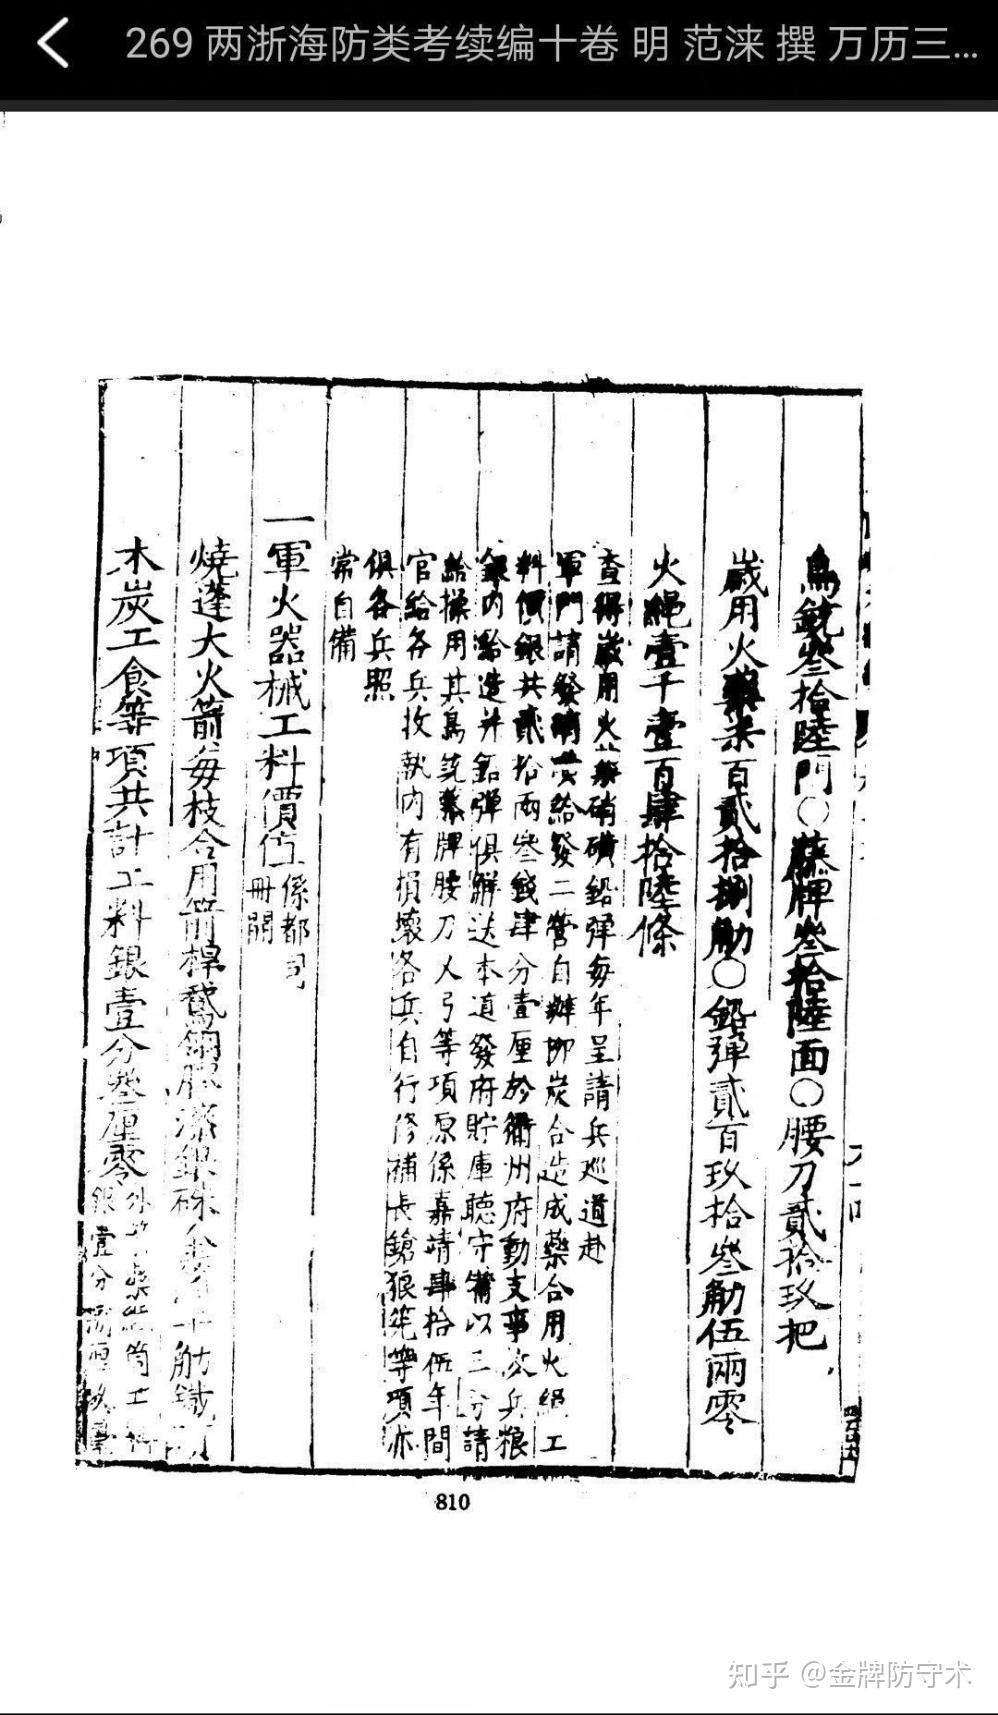 269 两浙海防类考续编十卷 明 范涞 撰 万历三...
鳥銃叁拾陸門○藤牌叁拾陸面○腰刀貳拾玖把
歲用火藥柒百貳拾捌觔○鉛彈貳百玖拾叁觔伍兩零
火繩壹千壹百肆拾陸條
查得歲用火藥硝磺鉛彈每年呈請兵巡道赴
軍門請發硝磺給發二營自辦柳炭合造成藥合用火繩工
料價銀共貳拾兩叁錢肆分壹厘於衢州府動支事故兵糧
銀內給造并鉛彈俱解送本道發府貯庫聽守備以三分請
給操用其鳥銃藤牌腰刀人弓等項原係嘉靖肆拾伍年間
官給各兵收執內有損壞各兵自行修補長鎗狼筅等項亦
俱各兵照
常自備
一軍火器械工料價值係都司
冊開
燒蓬大火箭每枝合用箭桿鵞翎膠漆銀硃
木炭工食等項共計工料銀壹分叁厘零
810
知乎 @金牌防守术